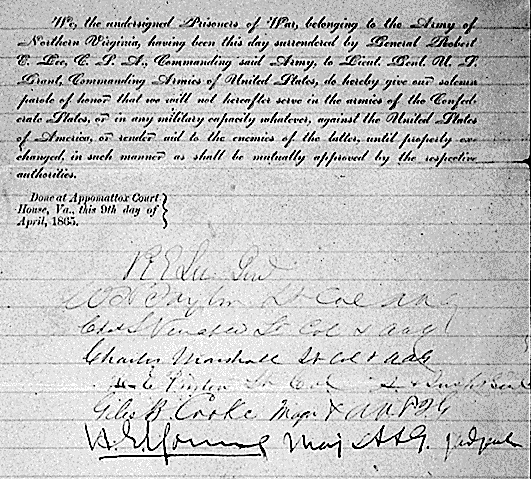 We, the undersigned Prisoners of War, belonging to the Army of
Northern Virginia, having been this day surrendered by General Robert
E. Lee, C. S. A., Commanding said Army, to Lieut. Genl. U. S.
Grant, Commanding Armies of United States, do hereby give our solemn
parole of honor that we will not hereafter serve in the armies of the Confed-
erate States, or in any military capacity whatever, against the United States
of America, or render aid to the enemies of the latter, until properly ex-
changed, in such manner as shall be mutually approved by the respective
authorities.
Done at Appomattox Court
House, Va., this 9th day of
April, 1865.
R E Lee Genl
W H Taylor Lt Col AAG
Chas S Venable Lt Col & AAG
Charles Marshall Lt Col & AAG
H E Peyton Lt Col &
Giles B. Cooke Major & AAG
H. E. Young Maj AAG